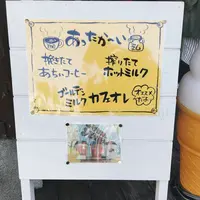 あったか〜い
挽きたて
あちぃコーヒー
搾りたて
ホットミルク
ゴールデン
ミルク
カフェオレ
オススメ